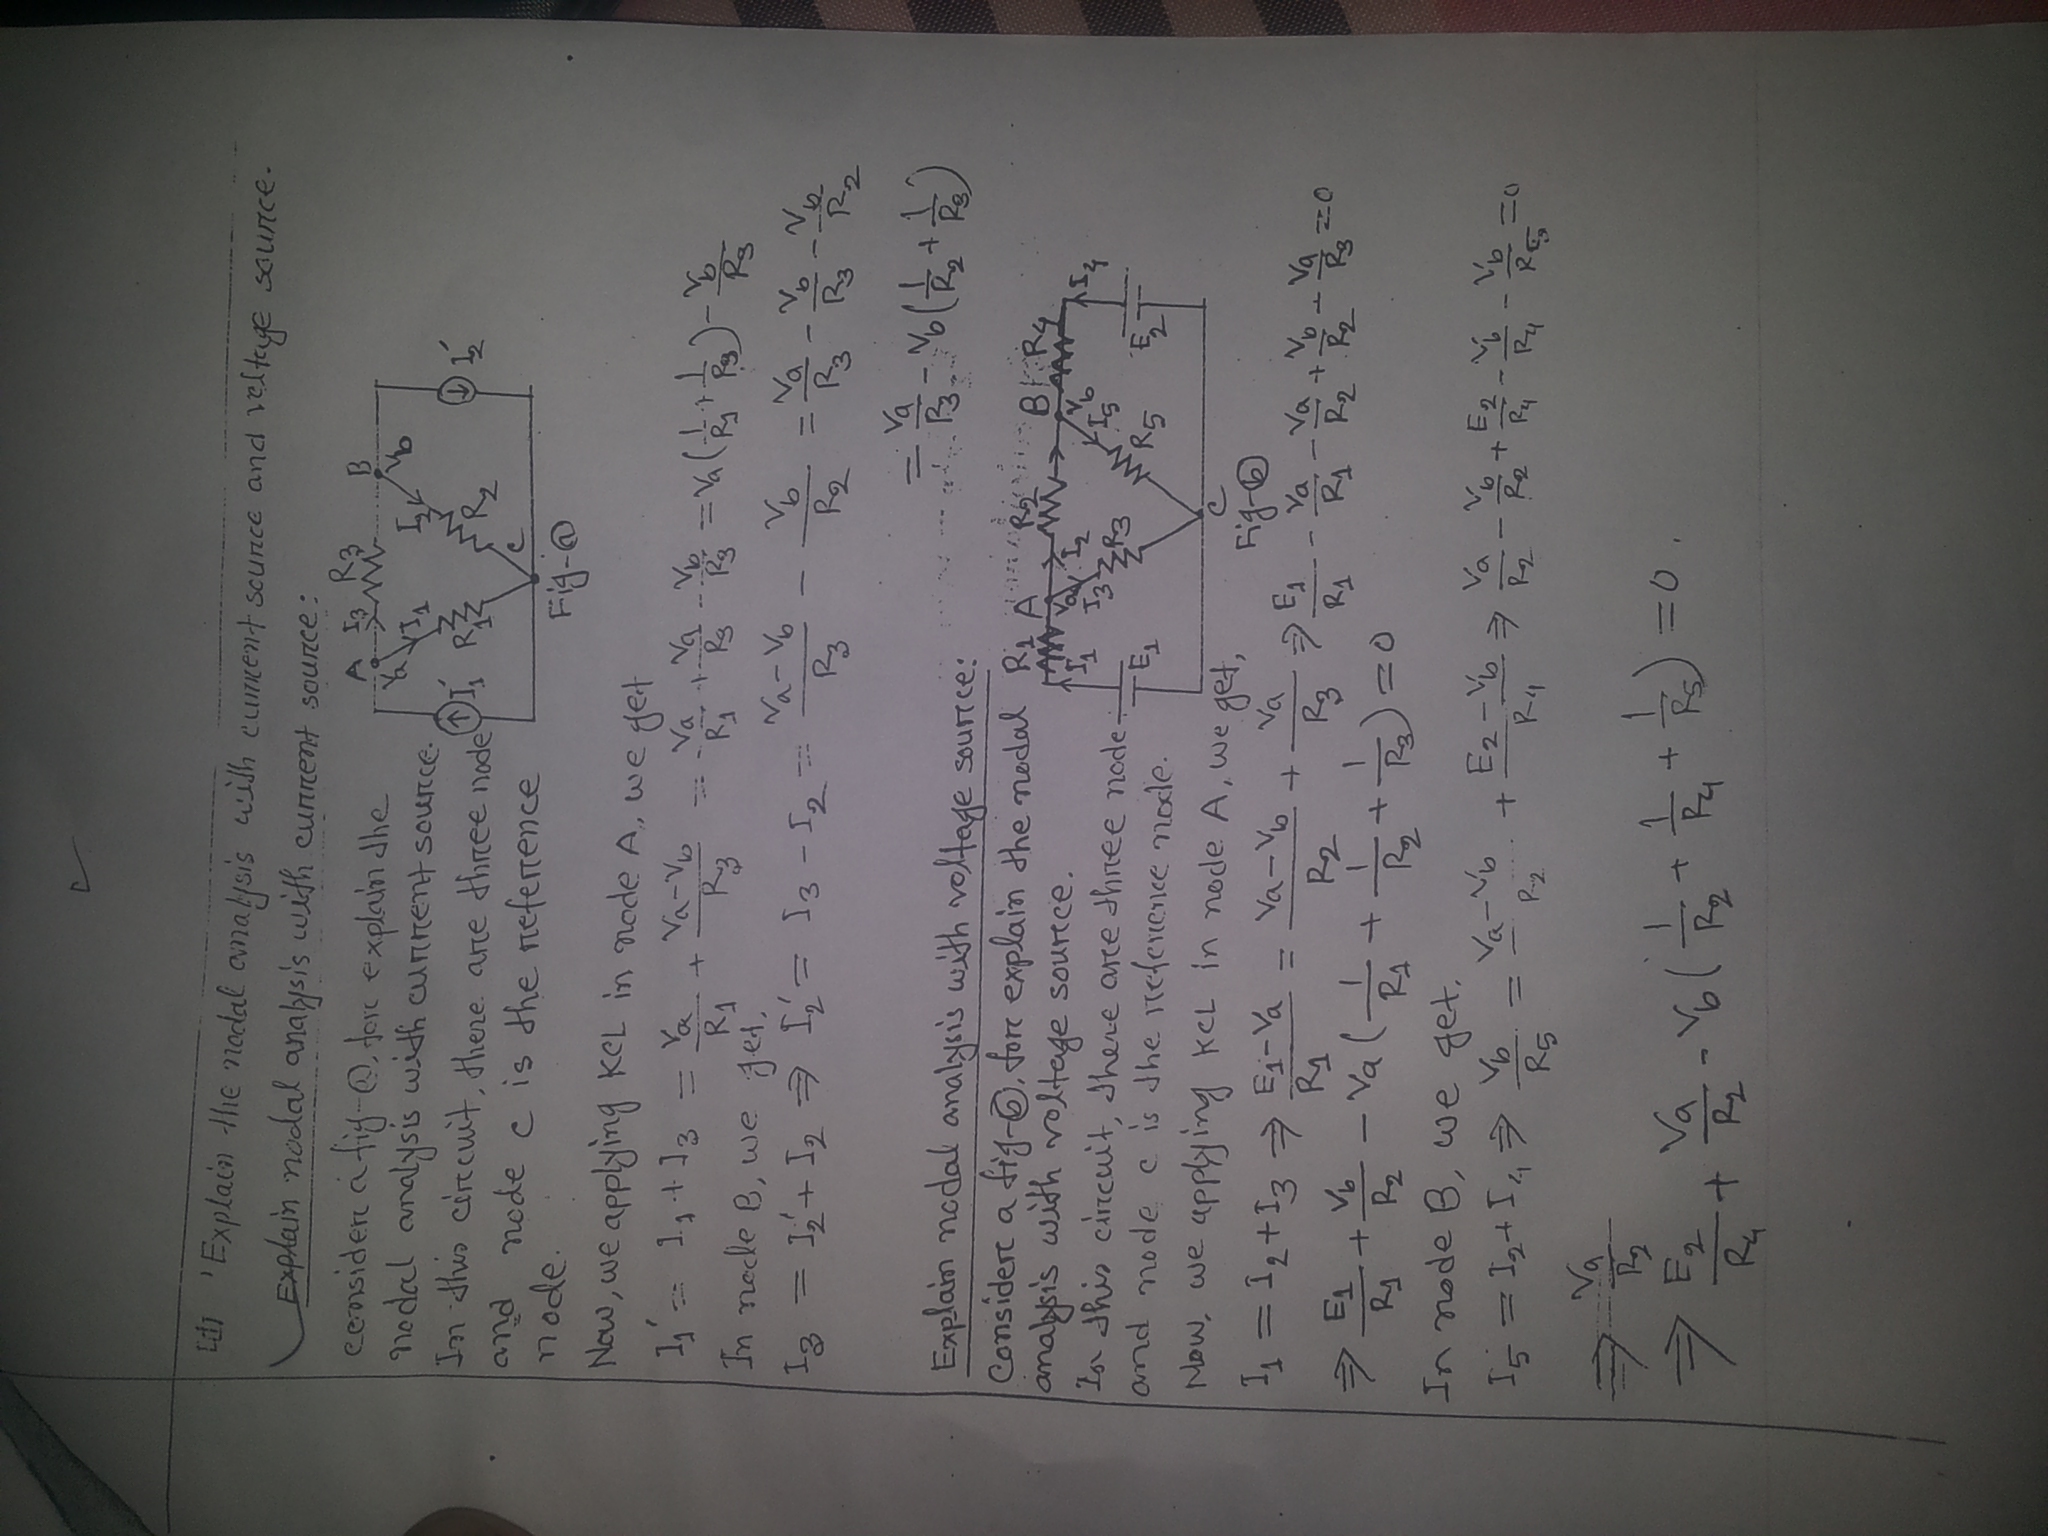 [d] 'Explain the nodal analysis with current source and voltage source.
Explain nodal analysis with current source:
consider a fig-ⓐ, fore explain the
nodal analysis with current source.
In this circuit, there are three node
and node c is the reference
node.
A I3 R3 B
Va I1 I2 Vb
I1' R1 R2 I2'
C
Fig-ⓐ
Now, we applying KCL in node A, we get
I1' = I1 + I3 = Va/R1 + (Va-Vb)/R3 = Va/R1 + Va/R3 - Vb/R3 = Va(1/R1 + 1/R3) - Vb/R3
In node B, we get,
I3 = I2' + I2 ⇒ I2' = I3 - I2 = (Va-Vb)/R3 - Vb/R2 = Va/R3 - Vb/R3 - Vb/R2
= Va/R3 - Vb(1/R2 + 1/R3)
Explain nodal analysis with voltage source:
Consider a fig-ⓑ, fore explain the nodal
analysis with voltage source.
In this circuit, there are three node
and node c is the reference node.
R1 A R2 B R4
I1 Va I2 Vb I4
I3 R3 I5
E1 R5 E2
C
Fig-ⓑ
Now, we applying KCL in node A, we get,
I1 = I2 + I3 ⇒ (E1-Va)/R1 = (Va-Vb)/R2 + Va/R3 ⇒ E1/R1 - Va/R1 - Va/R2 + Vb/R2 - Va/R3 = 0
⇒ E1/R1 + Vb/R2 - Va(1/R1 + 1/R2 + 1/R3) = 0
In node B, we get,
I5 = I2 + I4 ⇒ Vb/R5 = (Va-Vb)/R2 + (E2-Vb)/R4 ⇒ Va/R2 - Vb/R2 + E2/R4 - Vb/R4 - Vb/R5 = 0
⇒ Va/R2
⇒ E2/R4 + Va/R2 - Vb(1/R2 + 1/R4 + 1/R5) = 0.